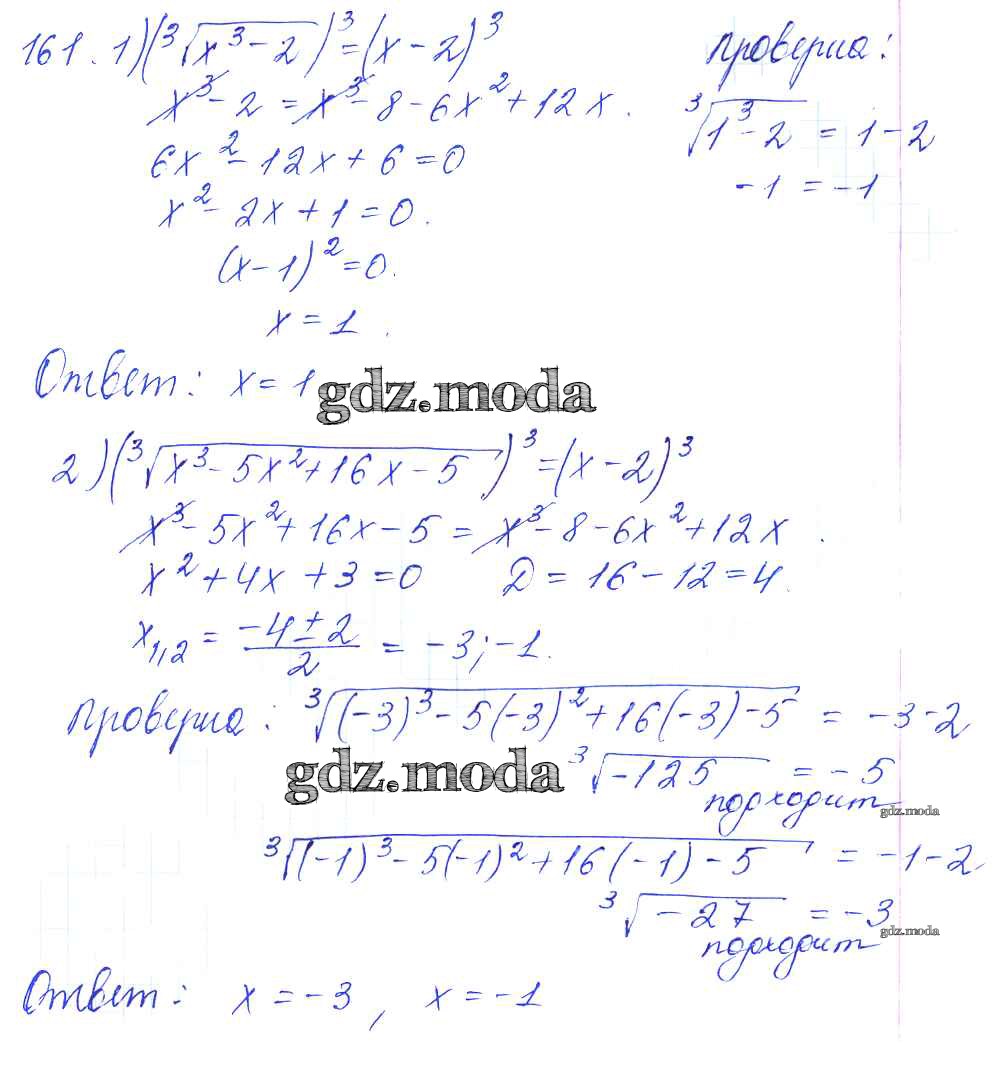 161. 1) (∛(x³ - 2))³ = (x - 2)³
x³ - 2 = x³ - 8 - 6x² + 12x.
6x² - 12x + 6 = 0
x² - 2x + 1 = 0.
(x - 1)² = 0.
x = 1.
Проверка:
∛(1³ - 2) = 1 - 2
-1 = -1
Ответ: x = 1
gdz.moda
2) (∛(x³ - 5x² + 16x - 5))³ = (x - 2)³
x³ - 5x² + 16x - 5 = x³ - 8 - 6x² + 12x.
x² + 4x + 3 = 0 D = 16 - 12 = 4.
x₁,₂ = (-4 ± 2)/2 = -3; -1.
Проверка: ∛((-3)³ - 5(-3)² + 16(-3) - 5) = -3 - 2
gdz.moda
∛(-125) = -5
подходит
gdz.moda
∛((-1)³ - 5(-1)² + 16(-1) - 5) = -1 - 2
∛(-27) = -3
gdz.moda
подходит
Ответ: x = -3, x = -1